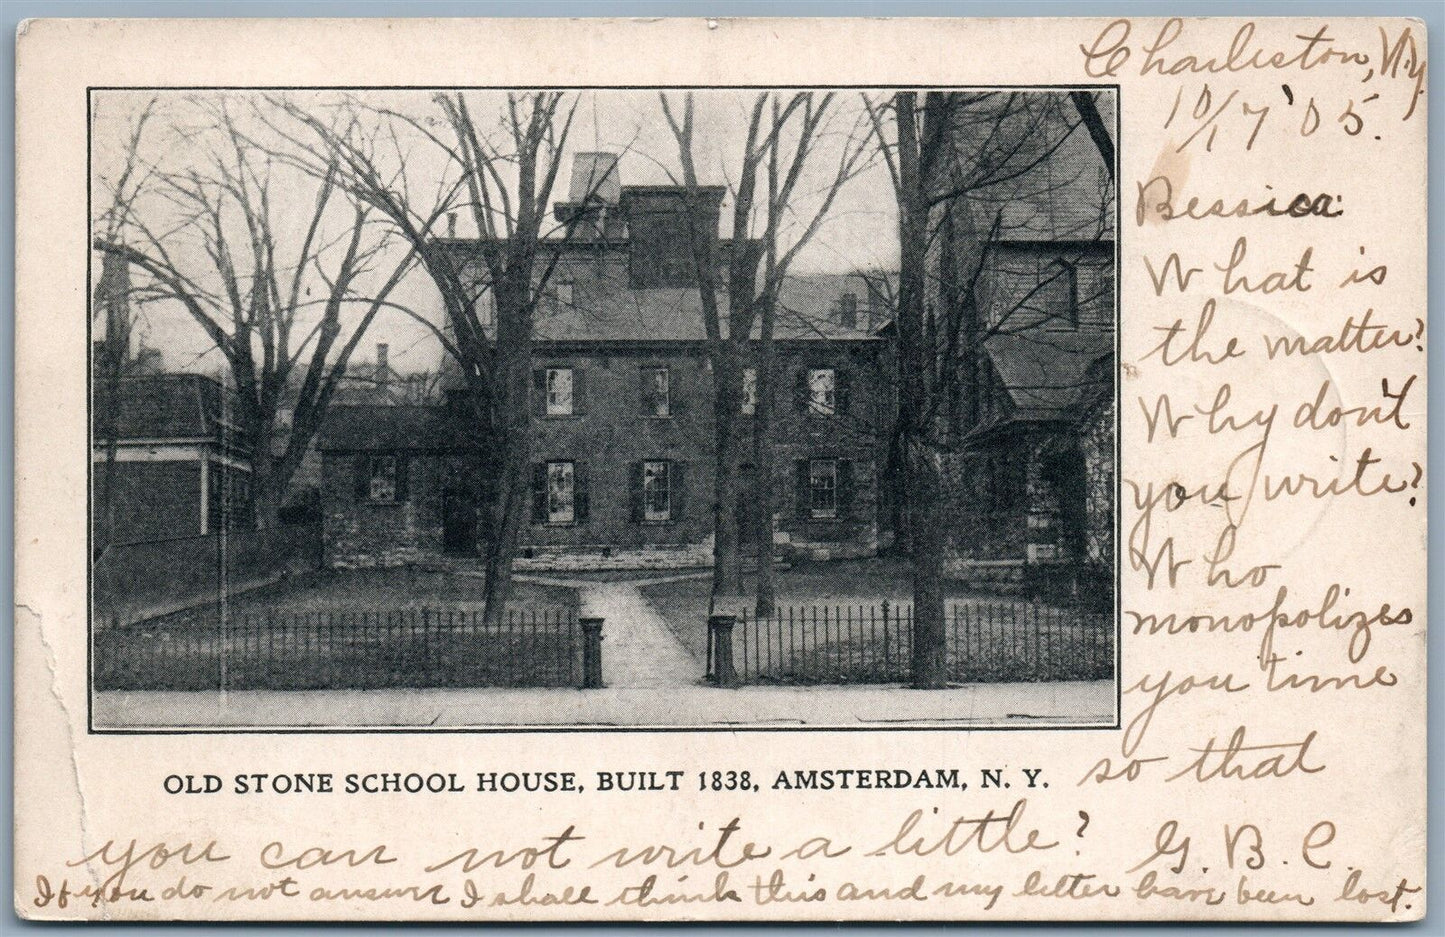 Charleston, N.Y.
10/17 '05.
Bessica:
What is
the matter?
Why don't
you write?
Who
monopolizes
you time
OLD STONE SCHOOL HOUSE, BUILT 1838, AMSTERDAM, N. Y.
so that
you can not write a little?
G. B. C.
If you do not answer I shall think this and my letter have been lost.